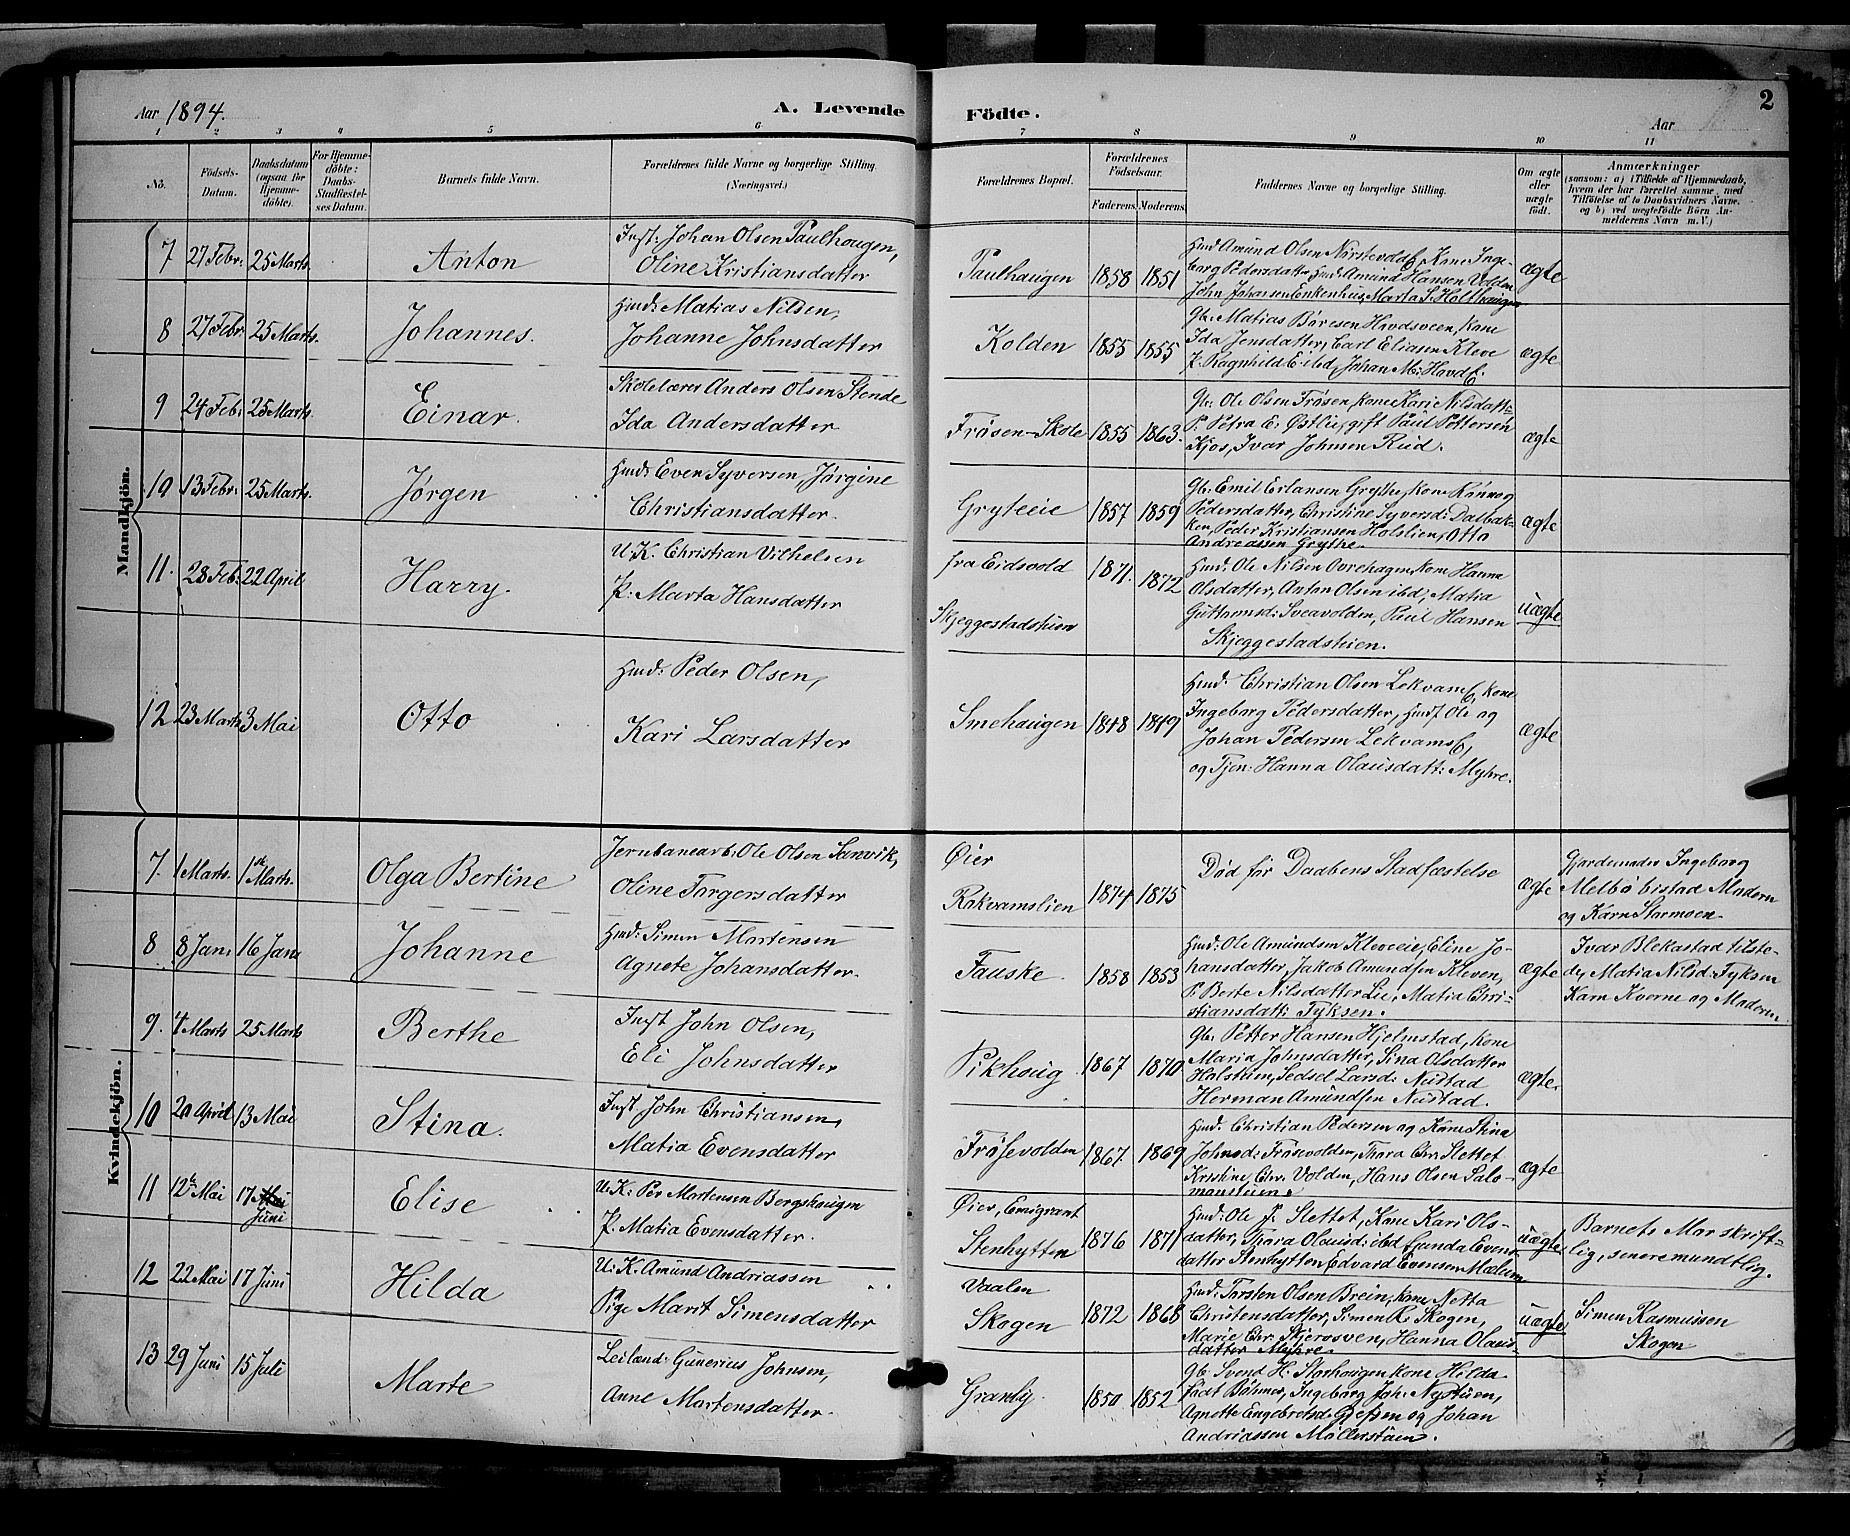 Aar 1894.
A. Levende Födte.
Aar
2
1 2 3 4 5 6 7 8 9 10 11
No.
Födsels-Datum.
Daabsdatum (ogsaa for Hjemme-döbte).
For Hjemme-döbte: Daabs-Stadfæstel-ses Datum.
Barnets fulde Navn.
Forældrenes fulde Navne og borgerlige Stilling. (Næringsvei.)
Forældrenes Bopæl.
Forældrenes Födselsaar.
Faderens. Moderens.
Faddernes Navne og borgerlige Stilling.
Om ægte eller uægte födt.
Anmærkninger
(saasom: a) i Tilfælde af Hjemmedaab,
hvem der har forrettet samme, med
Tilföielse af to Daabsvidners Navne,
og b) ved uægtefödte Börn An-
melderens Navn m. V.)
Mandkjön.
7 27 Febr: 25 Marts. Anton
Inst: Johan Olsen Paulhougen,
Oline Kristiansdatter
Paulhaugen 1858 1851
Hmd: Amund Olsen Nørstevold, Kone Inge-
borg Pedersdatter, Hmd: Amund Hansen Volden
John Johansen Enkenhus, Marta S. Holthaugen
ægte
8 27 Febr: 25 Marts. Johannes.
Hmd: Matias Nilsen,
Johanne Johnsdatter
Kolden 1855 1855
Gb: Matias Børesen Hovdsveen, Kone
Ida Jensdatter, Carl Eliasen Kleve
P. Ragnhild E. ibd, Johan M: Hovd
ægte
9 24 Feb: 25 Marts. Einar.
Skolelærer Anders Olsen Stende
Ida Andersdatter
Frøsen-Skole 1855 1863.
Gb: Ole Olsen Frøsen, kone Kari Nilsdatt:,
P: Petra E. Østlie, gift Paul Pettersen
Kjos, Ivar Johnsen Rud.
ægte
10 13 Febr: 25 Marts. Jørgen
Hmd: Even Syversen, Jørgine
Christiansdatter.
Gryteeie 1857 1859
Gb: Emil Erlansen Grythe, Kone Rønnog
Pedersdatter, Christine Syversd: Dalbak-
ken, Peder Kristiansen Holslien, Otto
Andreassen Grythe.
ægte
11. 28 Feb: 22 April Harry.
U.K. Christian Vilhelsen
P: Marta Hansdatter
fra Eidsvold
Skjeggestadstuen
1871. 1872
Hmd: Ole Nilsen Overhagen, kone Hanna
Olsdatter, Anton Olsen ibd; Matia
Guttormsd: Sveavolden, Paul Hansen
Skjeggestadstuen.
uægte
12 23 Marts 3 Mai Otto
Hmd: Peder Olsen,
Kari Larsdatter
Smehaugen 1848 1849
Hmd: Christian Olsen Lekvam, Kone
Ingeborg Pedersdatter, Hmd Ole og
Johan Pedersen Lekvams,
og Tjen: Hanna Olausdatt: Myhre.
ægte
Kvindekjön.
7. 1 Marts. 1ste Marts. Olga Bertine
Jernbanearb: Ole Olsen Sanvik,
Oline Torgersdatter
Øier
Rokvamslien
1874 1875
Død før Daabens Stadfæstelse
ægte
Gjordemoder Ingeborg
Melbø bistad Modern
og Karn Stormoen.
8 8 Jani 16 Jani Johanne
Hmd: Simen Martensen
Agnete Johansdatter.
Fauske. 1858 1853
Hmd: Ole Amundsen Kleveeie, Eline Jo-
hansdatter, Jakob Amundsen Kleven,
P. Berte Nilsdatter Lie, Matia Chri-
stiansdatt: Fyksen.
ægte
Ivar Blekastad tilste-
de, Matia Nilsd: Fyksen
Karn Kverne og Moderen
9. 4 Marts 25 Marts Berthe
Inst John Olsen,
Eli Johnsdatter
Pikhoug 1867 1870
Gb: Petter Hansen Hjelmstad, kone
Maria Johnsdatter, Sina Olsdatter
Holstuen, Sedsel Larsd: Nustad
Herman Amundsen Nustad.
ægte.
10 20 April 13 Mai Stina.
Inst John Christiansen,
Matia Evensdatter
Frøsevolden 1867. 1869
Hmd: Christian Pedersen og Kone Stina
Johnsd: Frøsevolden, Thora Chr: Slettet
Kristine Chr: Volden, Hans Olsen Salo-
monstuen.
ægte
11 12te Mai 17 Mai Juni Elise
U.K: Per Martensen Bergshaugen
P. Matia Evensdatter.
Øier, Emigrant
Stenhytten
1876 1871
Hmd: Ole P. Slettet, Kone Kari Ols-
datter, Thora Olausd: ibd Gunda Evens-
datter Stenhytten, Edvard Evensen Mælum
uægte
Barnets Mor skrift-
lig, senere mundtlig.
12 22 Mai 17 Juni Hilda
U.K. Amund Andriassen
Pige Marit Simensdatter
Vaalen
Skogen
1872 1868
Hmd: Torsten Olsen Brein, kone Netta
Christensdatter, Simen R. Skogen,
Marie Chr. Skjerosven, Hanna Olaus-
datter Myhre.
uægte
Simen Rasmussen
Skogen
13 29 Juni 15 Juli Marte
Leilænd: Gunerius Johnsen,
Anne Martensdatter.
Granly. 1850 1852
Gb: Svend H. Storhougen kone Hilda
født Böhmer, Ingeborg Joh: Nystuen,
Agnette Engebretsd: og Johan
Andriassen Møllerstuen.